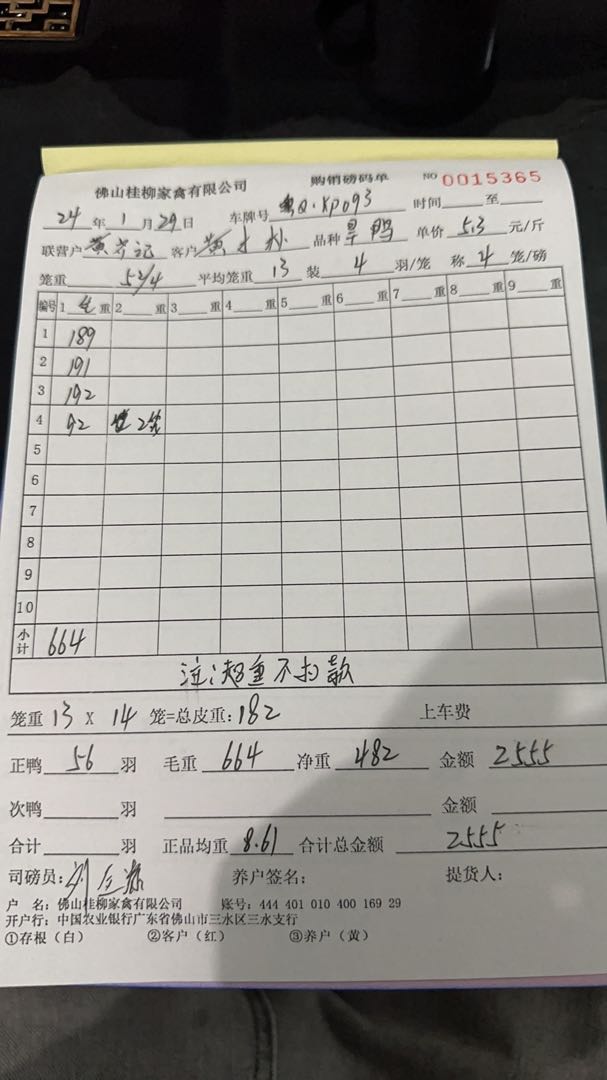 佛山桂柳家禽有限公司 购销磅码单 NO 0015365
24 年 1 月 29 日 车牌号 粤Q·XP093 时间 至
联营户 客户 黄 品种 旱鸭 单价 5.3 元/斤
笼重 52/4 平均笼重 13 装 4 羽/笼 称 4 笼/磅
编号 1 重 2 重 3 重 4 重 5 重 6 重 7 重 8 重 9 重
1 189
2 191
3 192
4 92 2笼
5
6
7
8
9
10
小计 664
注:超重不扣款
笼重 13 X 14 笼=总皮重:182 上车费
正鸭 56 羽 毛重 664 净重 482 金额 2555
次鸭 羽 金额
合计 羽 正品均重 8.61 合计总金额 2555
司磅员: 养户签名: 提货人:
户 名:佛山桂柳家禽有限公司 账号:444 401 010 400 169 29
开户行:中国农业银行广东省佛山市三水区三水支行
①存根(白) ②客户(红) ③养户(黄)